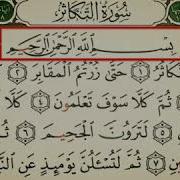 سُورَةُ التَّكَاثُرِ
بِسْمِ ٱللَّهِ ٱلرَّحْمَٰنِ ٱلرَّحِيمِ
ٱلتَّكَاثُرُ ١ حَتَّىٰ زُرْتُمُ ٱلْمَقَابِرَ ٢
ثُمَّ كَلَّا سَوْفَ تَعْلَمُونَ ٤ كَلَّا
٥ لَتَرَوُنَّ ٱلْجَحِيمَ ٦
٧ ثُمَّ لَتُسْـَٔلُنَّ يَوْمَئِذٍ عَنِ